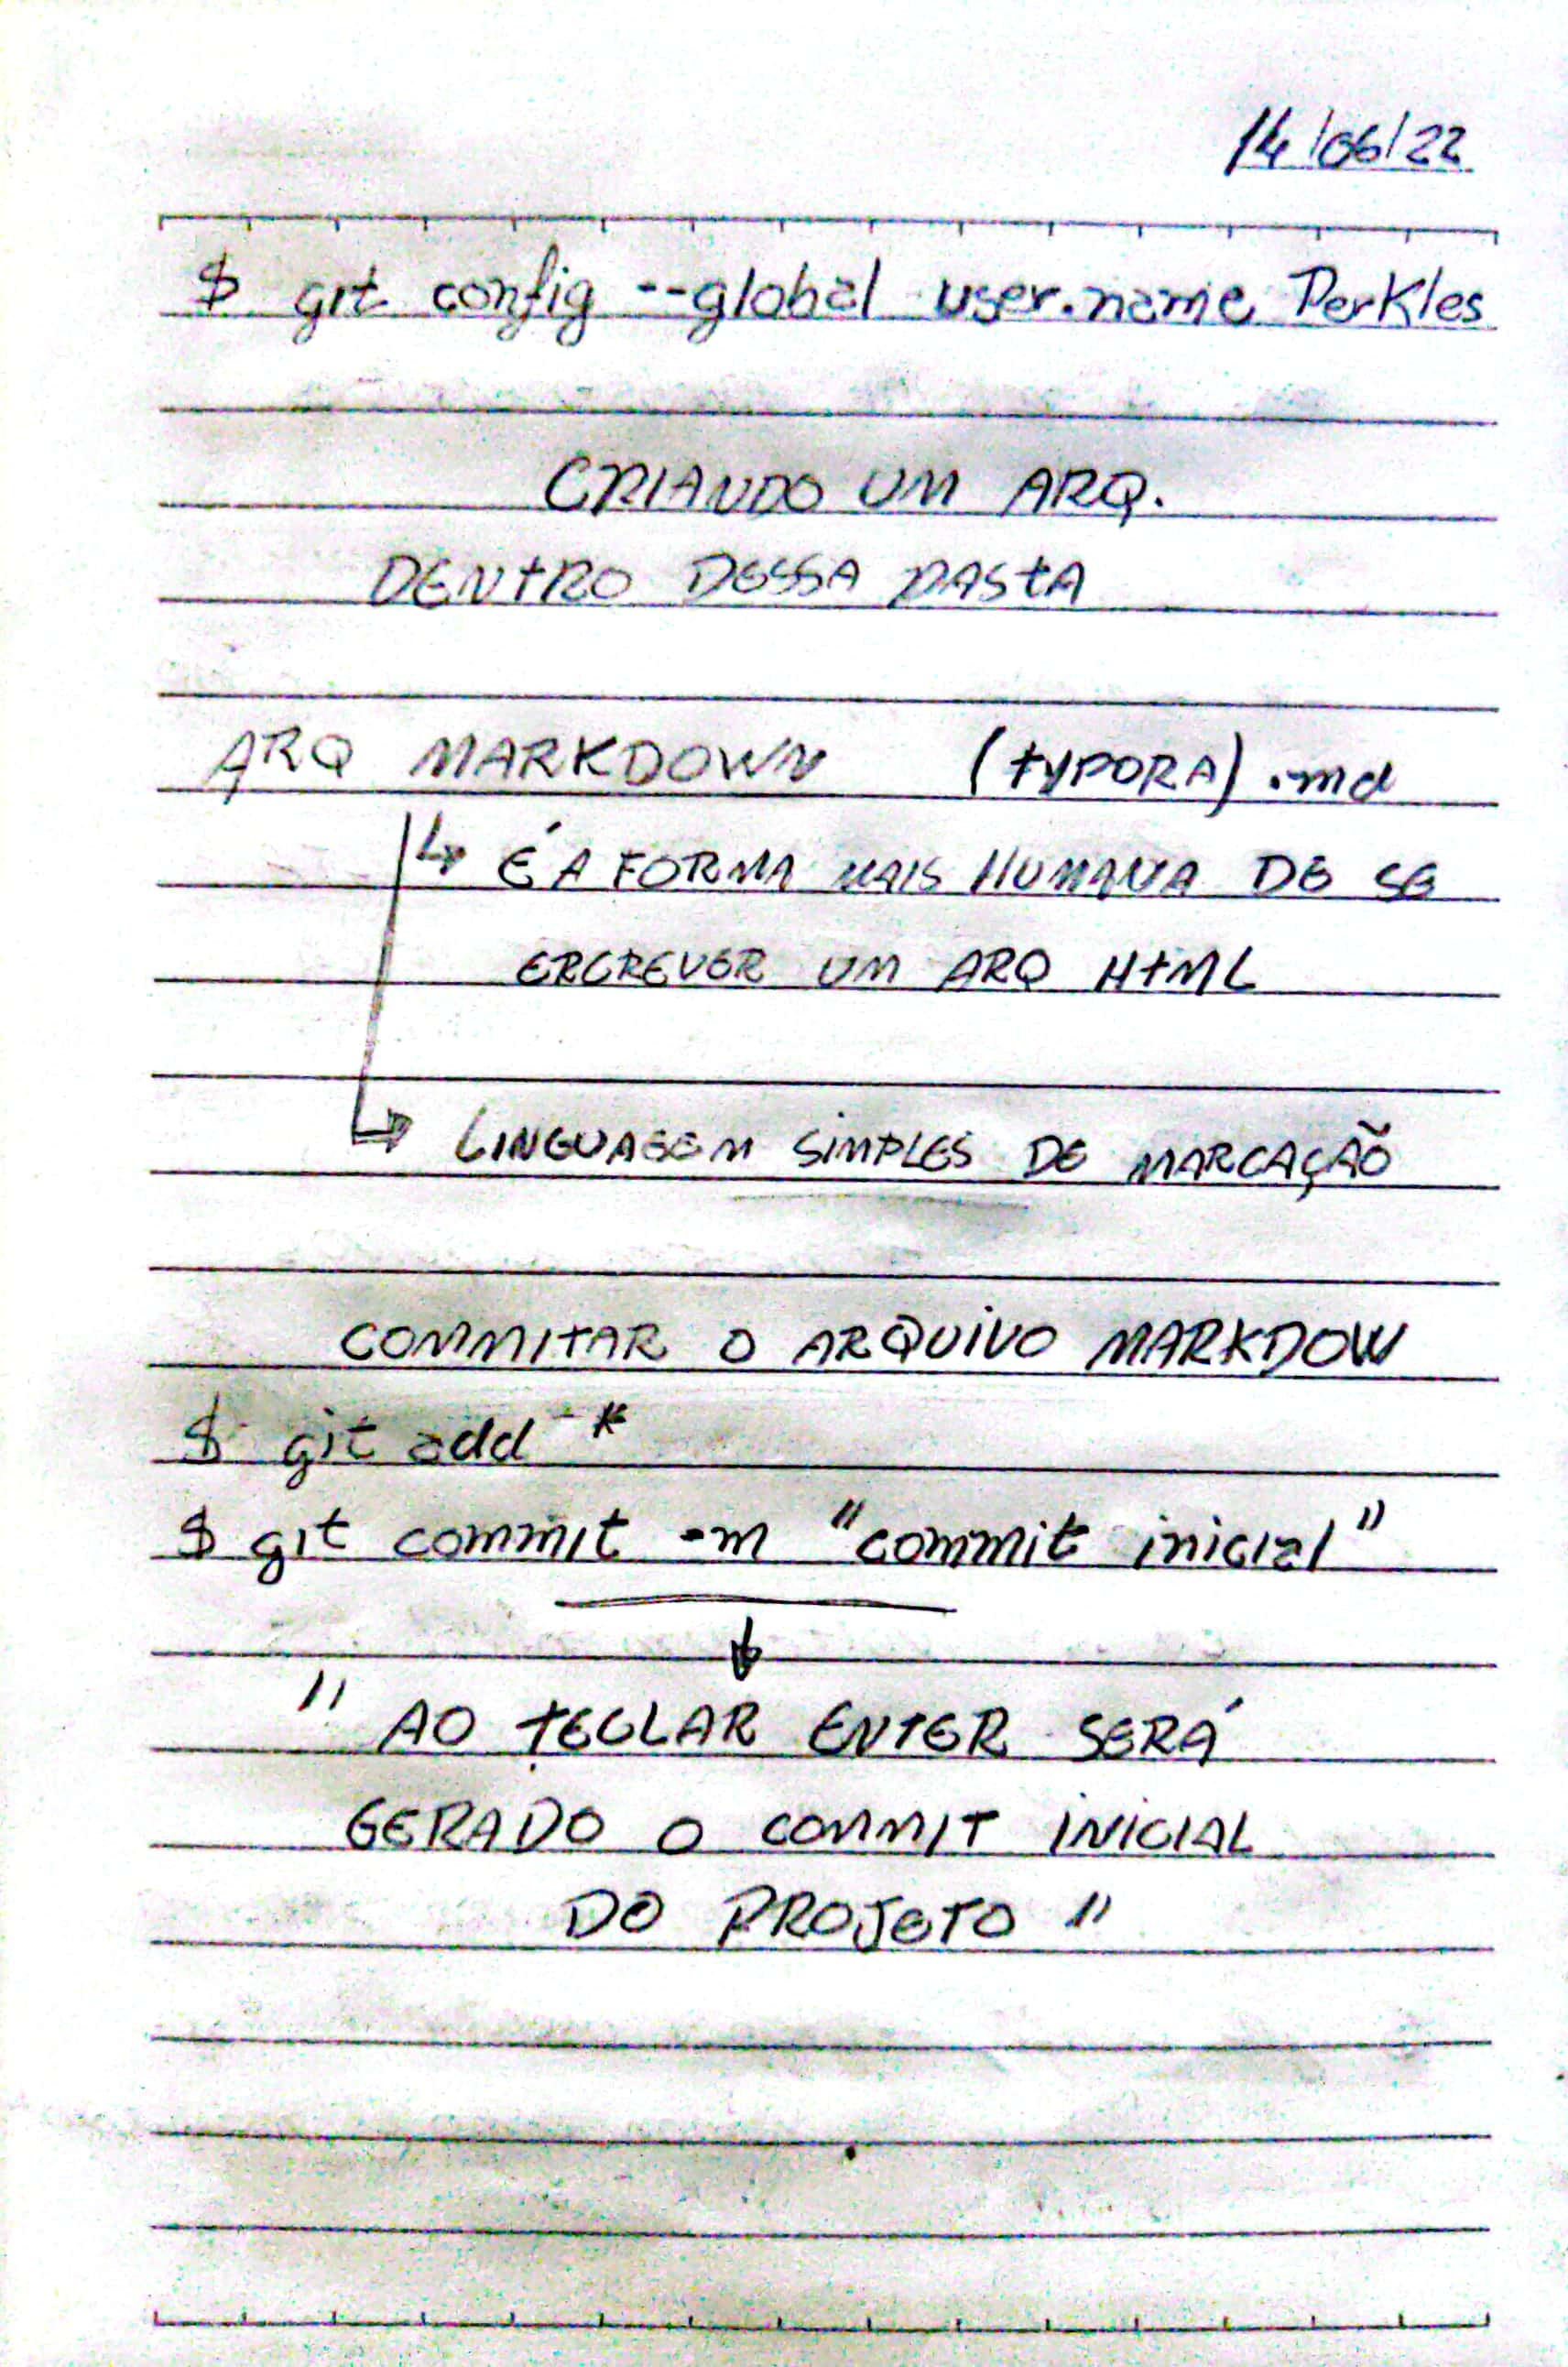 14/06/22
$ git config --global user.name Perkles
CRIANDO UM ARQ.
DENTRO DESSA PASTA
ARQ MARKDOWN (TYPORA) .md
↳ É A FORMA MAIS HUMANA DE SE
ERCREVER UM ARQ HTML
↳ LINGUAGEM SIMPLES DE MARCAÇÃO
COMMITAR O ARQUIVO MARKDOW
$ git add *
$ git commit -m "commit inicial"
↓
" AO TECLAR ENTER SERÁ
GERADO O COMMIT INICIAL
DO PROJETO "